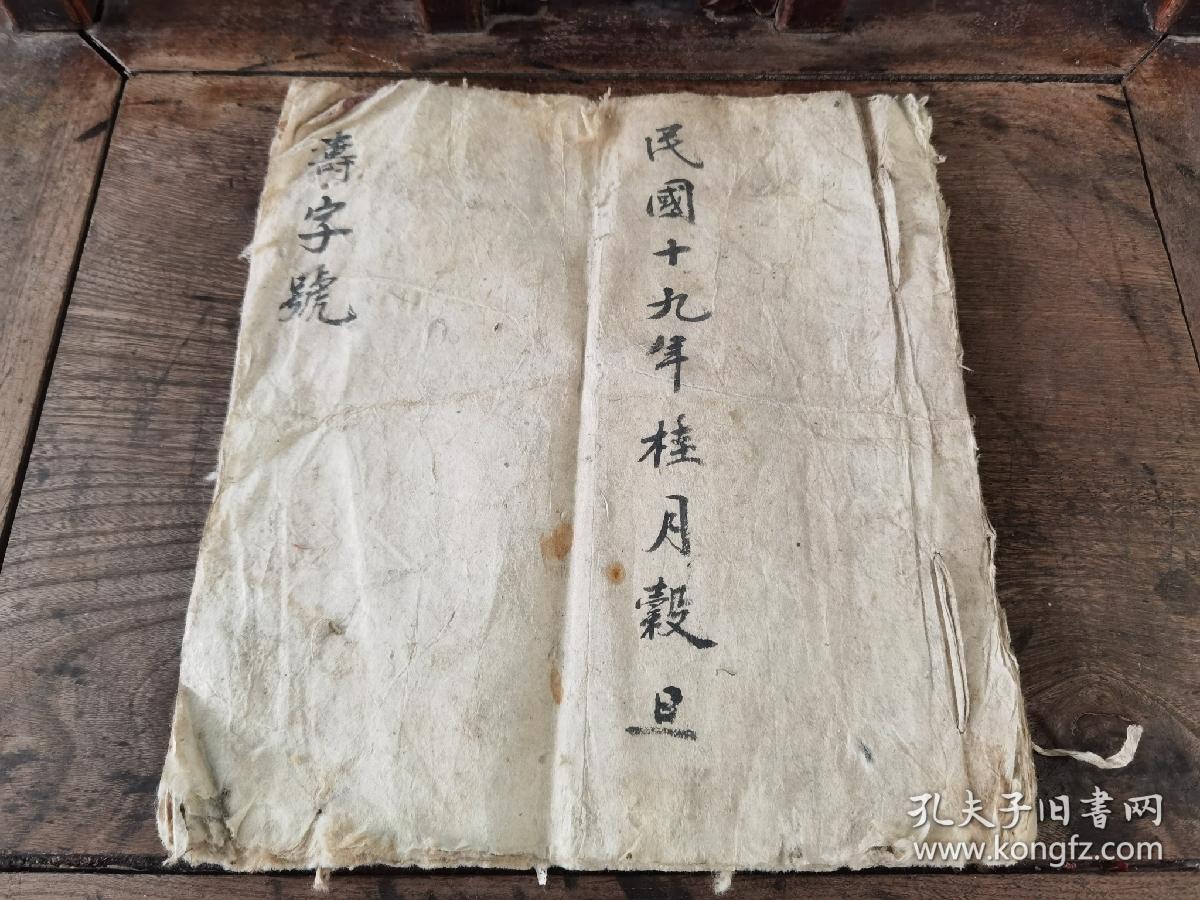 民國十九年桂月穀旦
壽字號
孔夫子旧书网
www.kongfz.com